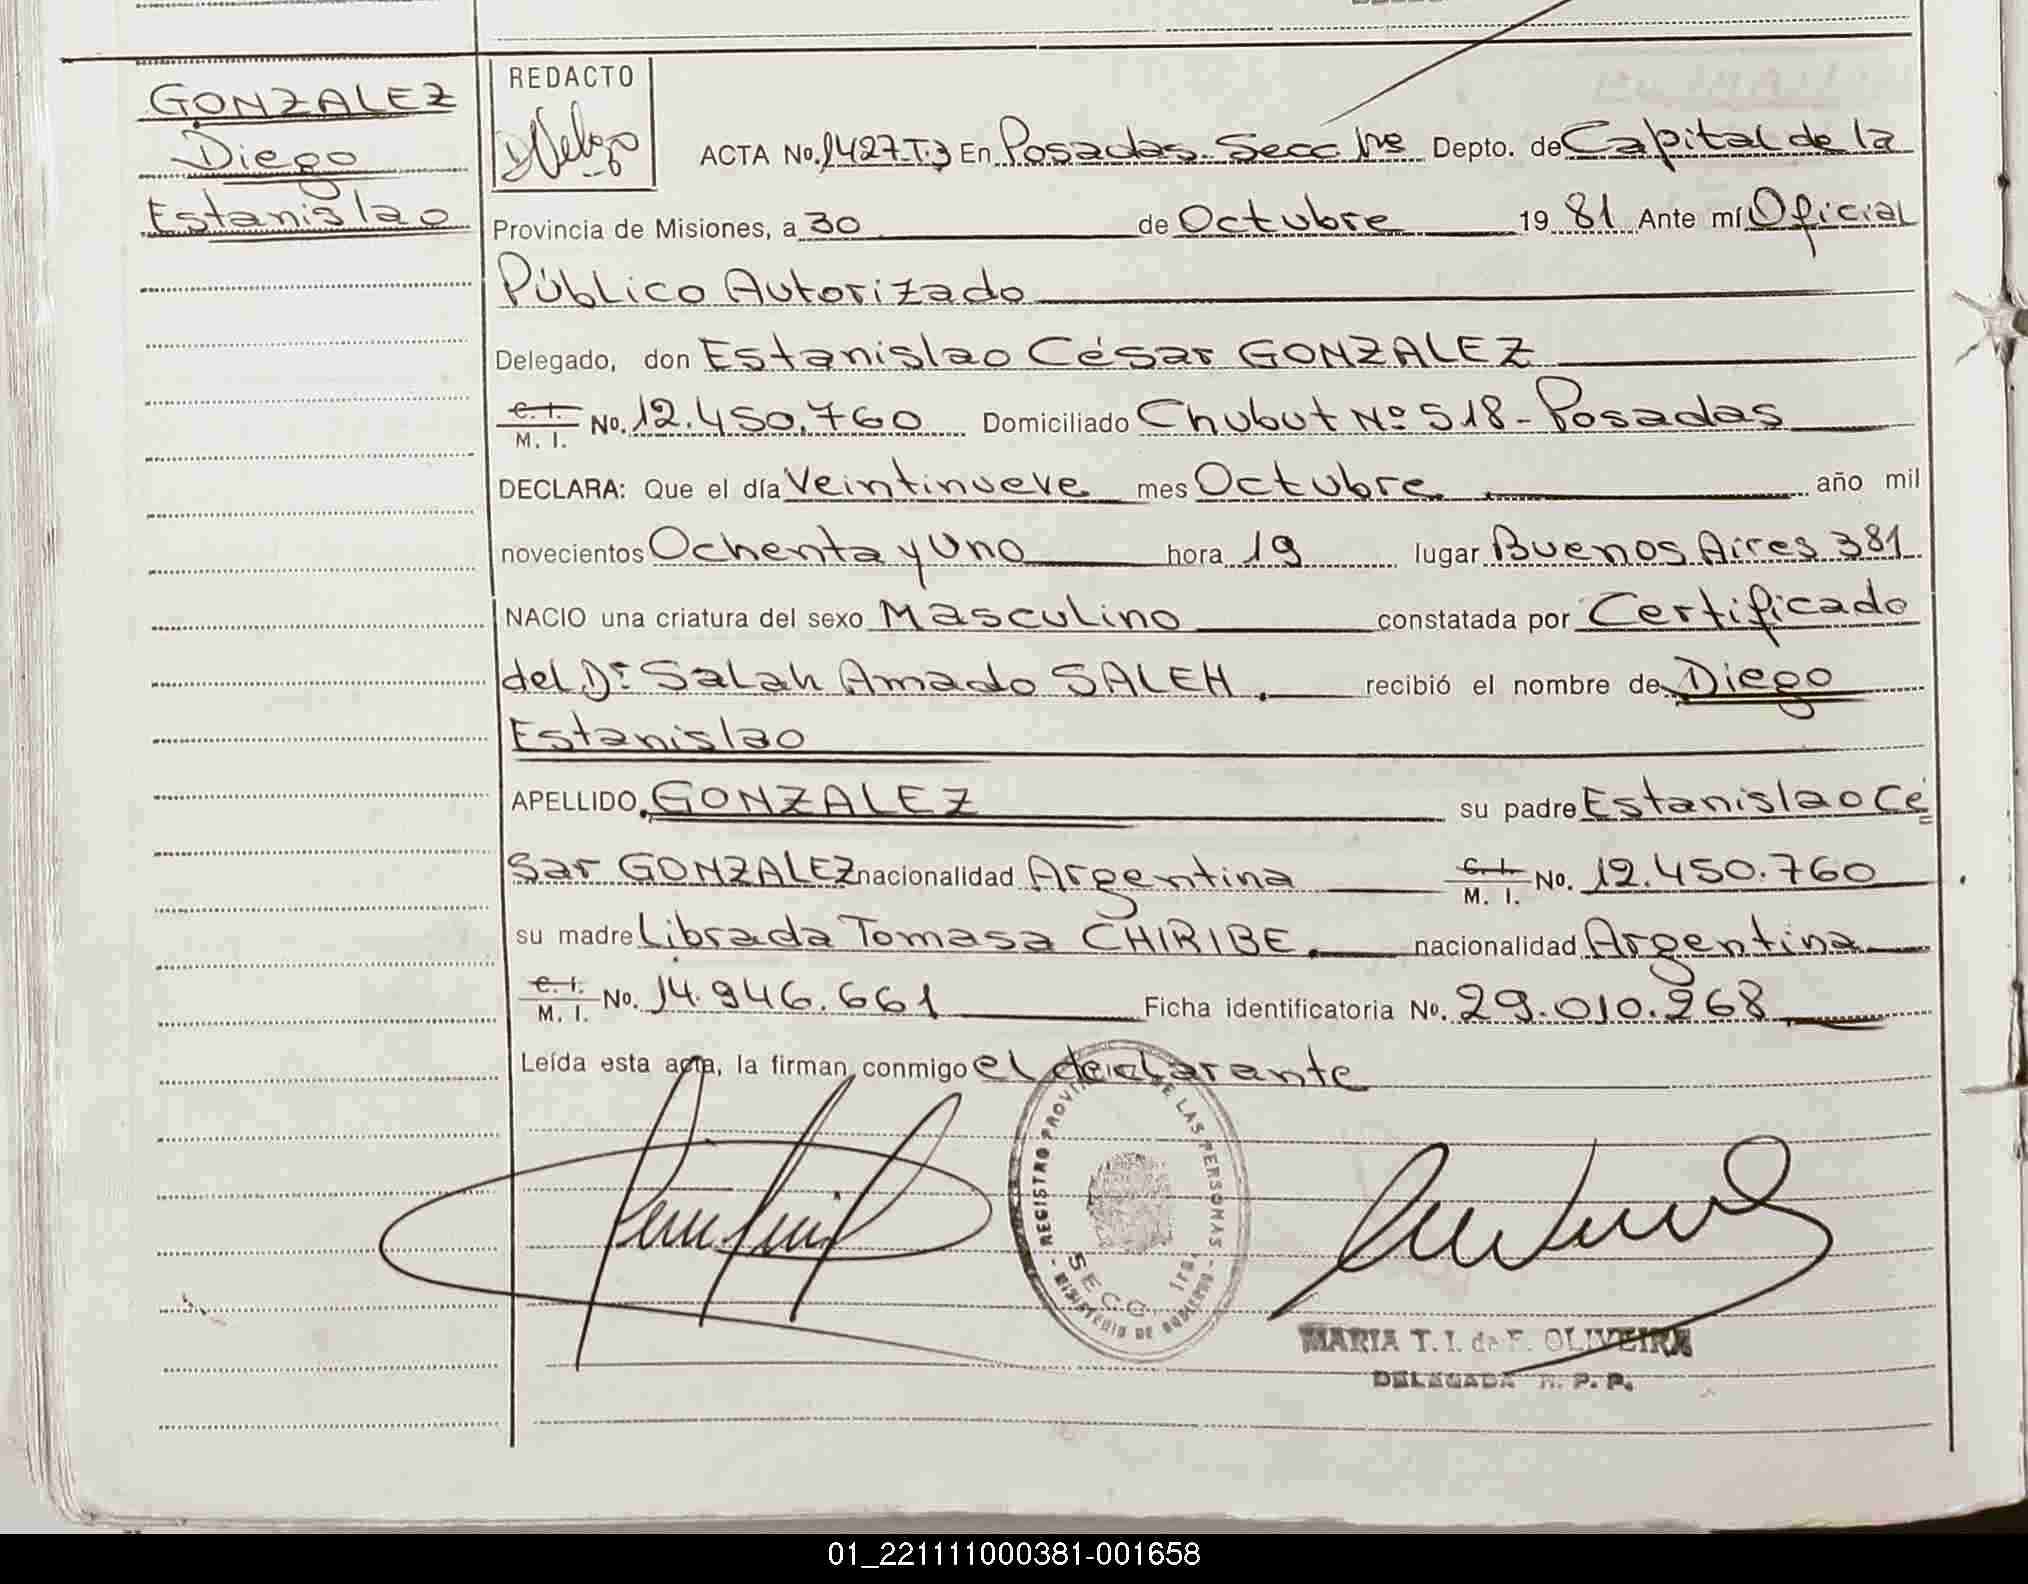 GONZALEZ
Diego
Estanislao
REDACTO
ACTA No. 2427 T. 3 En Posadas Secc 1ra Depto. de Capital de la
Provincia de Misiones, a 30 de Octubre 19 81 Ante mí Oficial
Público Autorizado
Delegado, don Estanislao César GONZALEZ
C. I. M. I. No. 12.450.760 Domiciliado Chubut Nº 518 - Posadas
DECLARA: Que el día Veintinueve mes Octubre año mil
novecientos Ochenta y Uno hora 19 lugar Buenos Aires 381
NACIO una criatura del sexo Masculino constatada por Certificado
del Dr. Salah Amado SALEH. recibió el nombre de Diego
Estanislao
APELLIDO GONZALEZ su padre Estanislao Cé
sar GONZALEZ nacionalidad Argentina C. I. M. I. No. 12.450.760
su madre Librada Tomasa CHIRIBE. nacionalidad Argentina
C. I. M. I. No. 14.946.661 Ficha identificatoria No. 29.010.268
Leída esta acta, la firman conmigo el declarante
REGISTRO PROVINCIAL DE LAS PERSONAS
SECC. 1ra.
- MINISTERIO DE GOBIERNO -
MARIA T. I. de F. OLIVEIRA
DELEGADA R. P. P.
01_221111000381-001658